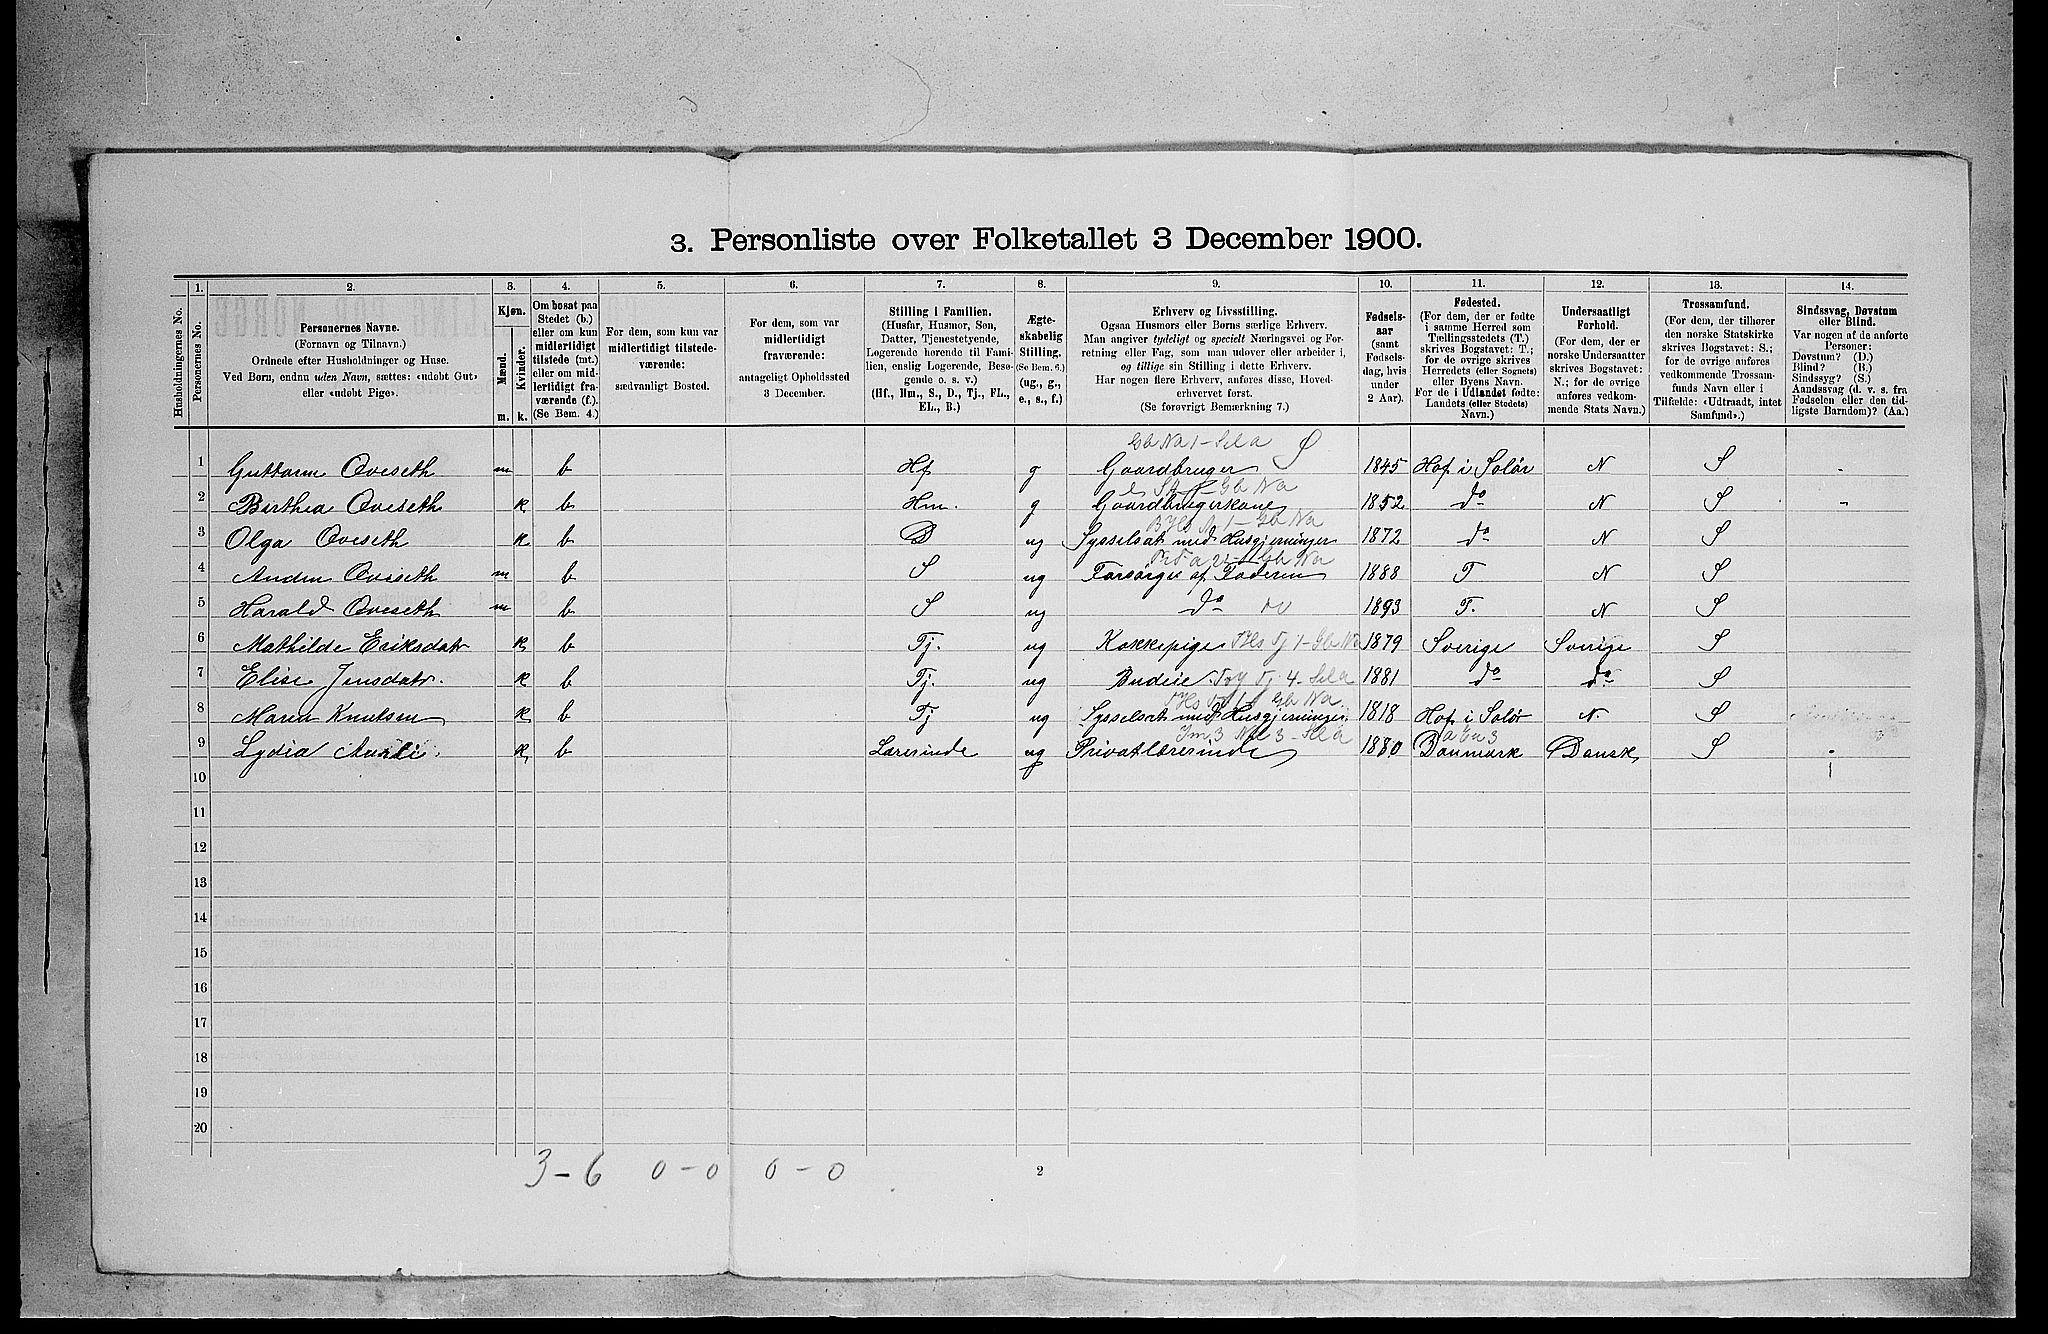 3. Personliste over Folketallet 3 December 1900.
1. 2. 3. 4. 5. 6. 7. 8. 9. 10. 11. 12. 13. 14.
Husholdningernes No.
Personernes No.
Personernes Navne.
(Fornavn og Tilnavn.)
Ordnede efter Husholdninger og Huse.
Ved Børn, endnu uden Navn, sættes: «udøbt Gut»
eller «udøbt Pige».
Kjøn.
Mænd.
Kvinder.
m. k.
Om bosat paa
Stedet (b.)
eller om kun
midlertidigt
tilstede (mt.)
eller om mid-
lertidigt fra-
værende (f.).
(Se Bem. 4.)
For dem, som kun var
midlertidigt tilstede-
værende:
sædvanligt Bosted.
For dem, som var
midlertidigt
fraværende:
antageligt Opholdssted
3 December.
Stilling i Familien.
(Husfar, Husmor, Søn,
Datter, Tjenestetyende,
Logerende hørende til Fami-
lien, enslig Logerende, Besø-
gende o. s. v.)
(Hf., Hm., S., D., Tj., FL.,
EL., B.)
Ægte-
skabelig
Stilling.
(Se Bem. 6.)
(ug., g.,
e., s., f.)
Erhverv og Livsstilling.
Ogsaa Husmors eller Børns særlige Erhverv.
Man angiver tydeligt og specielt Næringsvei og For-
retning eller Fag, som man udøver eller arbeider i,
og tillige sin Stilling i dette Erhverv.
Har nogen flere Erhverv, anføres disse, Hoved-
erhvervet først.
(Se forøvrigt Bemærkning 7.)
Fødsels-
aar
(samt
Fødsels-
dag, hvis
under
2 Aar).
Fødested.
(For dem, der er fødte
i samme Herred som
Tællingsstedets (T.)
skrives Bogstavet: T.;
for de øvrige skrives
Herredets (eller Sognets)
eller Byens Navn.
For de i Udlandet fødte:
Landets (eller Stedets)
Navn.)
Undersaatligt
Forhold.
(For dem, der er
norske Undersaatter
skrives Bogstavet:
N.; for de øvrige
anføres vedkom-
mende Stats Navn.)
Trossamfund.
(For dem, der tilhører
den norske Statskirke
skrives Bogstavet: S.;
for de øvrige anføres
vedkommende Trossam-
funds Navn eller i
Tilfælde: «Udtraadt, intet
Samfund».)
Sindssvag, Døvstum
eller Blind.
Var nogen af de anførte
Personer:
Døvstum? (D.)
Blind? (B.)
Sindssyg? (S.)
Aandssvag (d. v. s. fra
Fødselen eller den tid-
ligste Barndom)? (Aa.)
1 Guttorm Oveseth m b Hf g Gaardbruger 1845 Hof i Solør N S
2 Berthea Oveseth k b Hm. g Gaardbrugerkone 1852 do N S
3 Olga Oveseth k b D ug Sysselsat med Husgjerninger 1872 do N S
4 Anden Oveseth m b S ug Forsørges af Faderen 1888 T N S
5 Harald Oveseth m b S ug do 1893 T. N S
6 Mathilde Eriksdatr k b Tj. ug Kokkepige 1879 Sverige Sverige S
7 Elise Jensdatr. k b Tj. ug Budeie 1881 do do S
8 Maren Knutsen k b Tj ug Sysselsat med Husgjerninger 1818 Hof i Solør N. S
9 Lydia k b Lærerinde ug Privatlærerinde 1880 Danmark Dansk S
10
11
12
13
14
15
16
17
18
19
20
3-6 0-0 0-0
2